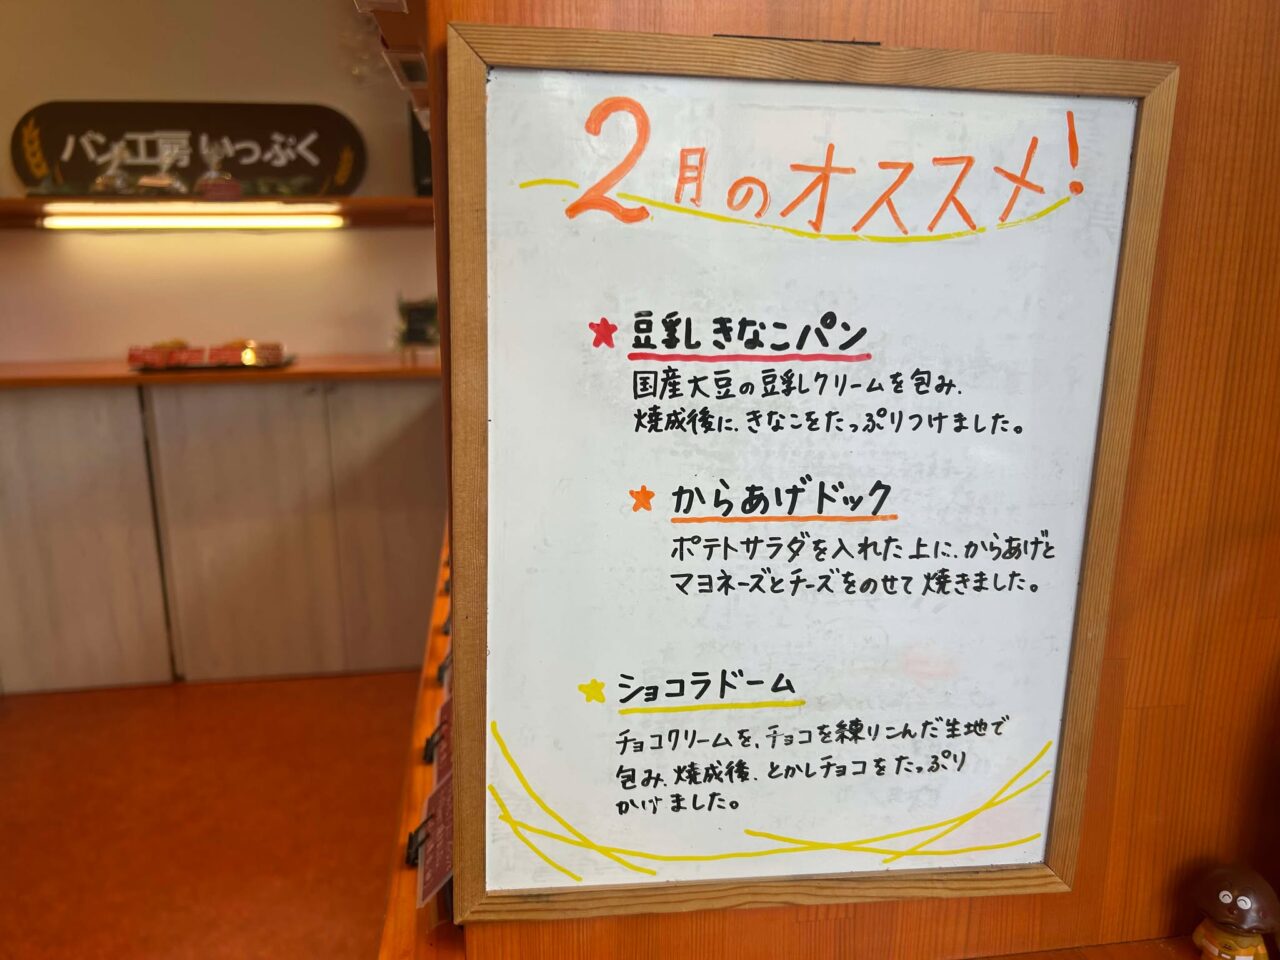 パン工房 いっぷく
2月のオススメ!
豆乳きなこパン
国産大豆の豆乳クリームを包み、
焼成後に、きなこをたっぷりつけました。
からあげドック
ポテトサラダを入れた上に、からあげと
マヨネーズとチーズをのせて焼きました。
ショコラドーム
チョコクリームを、チョコを練りこんだ生地で
包み、焼成後、とかしチョコをたっぷり
かけました。